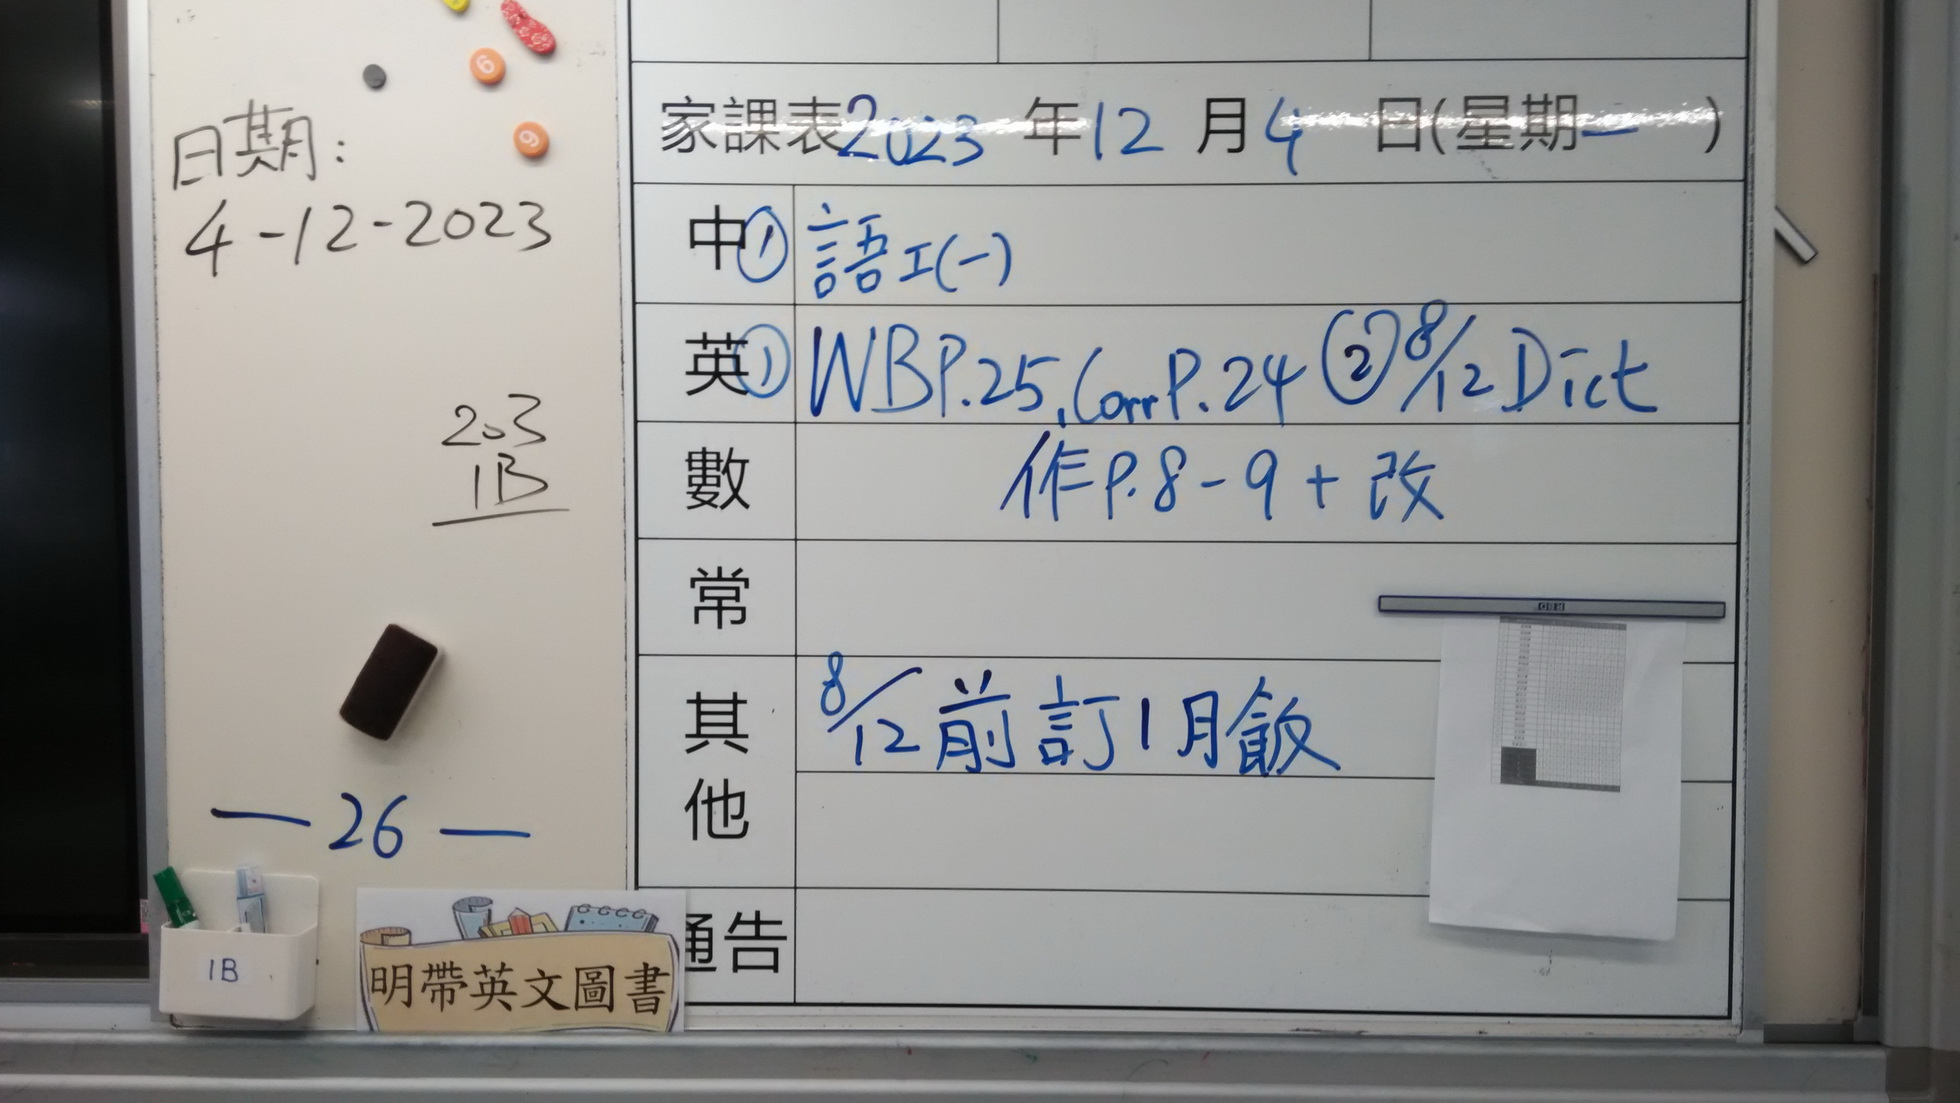 日期:
4-12-2023
203
1B
— 26 —
1B
明帶英文圖書
家課表2023年12月4日(星期一)
中① 語工(一)
英① WBP.25, Corr P.24 ② 8/12 Dict
數 作P.8-9+改
常
其他 8/12前訂1月飯
通告
6
6